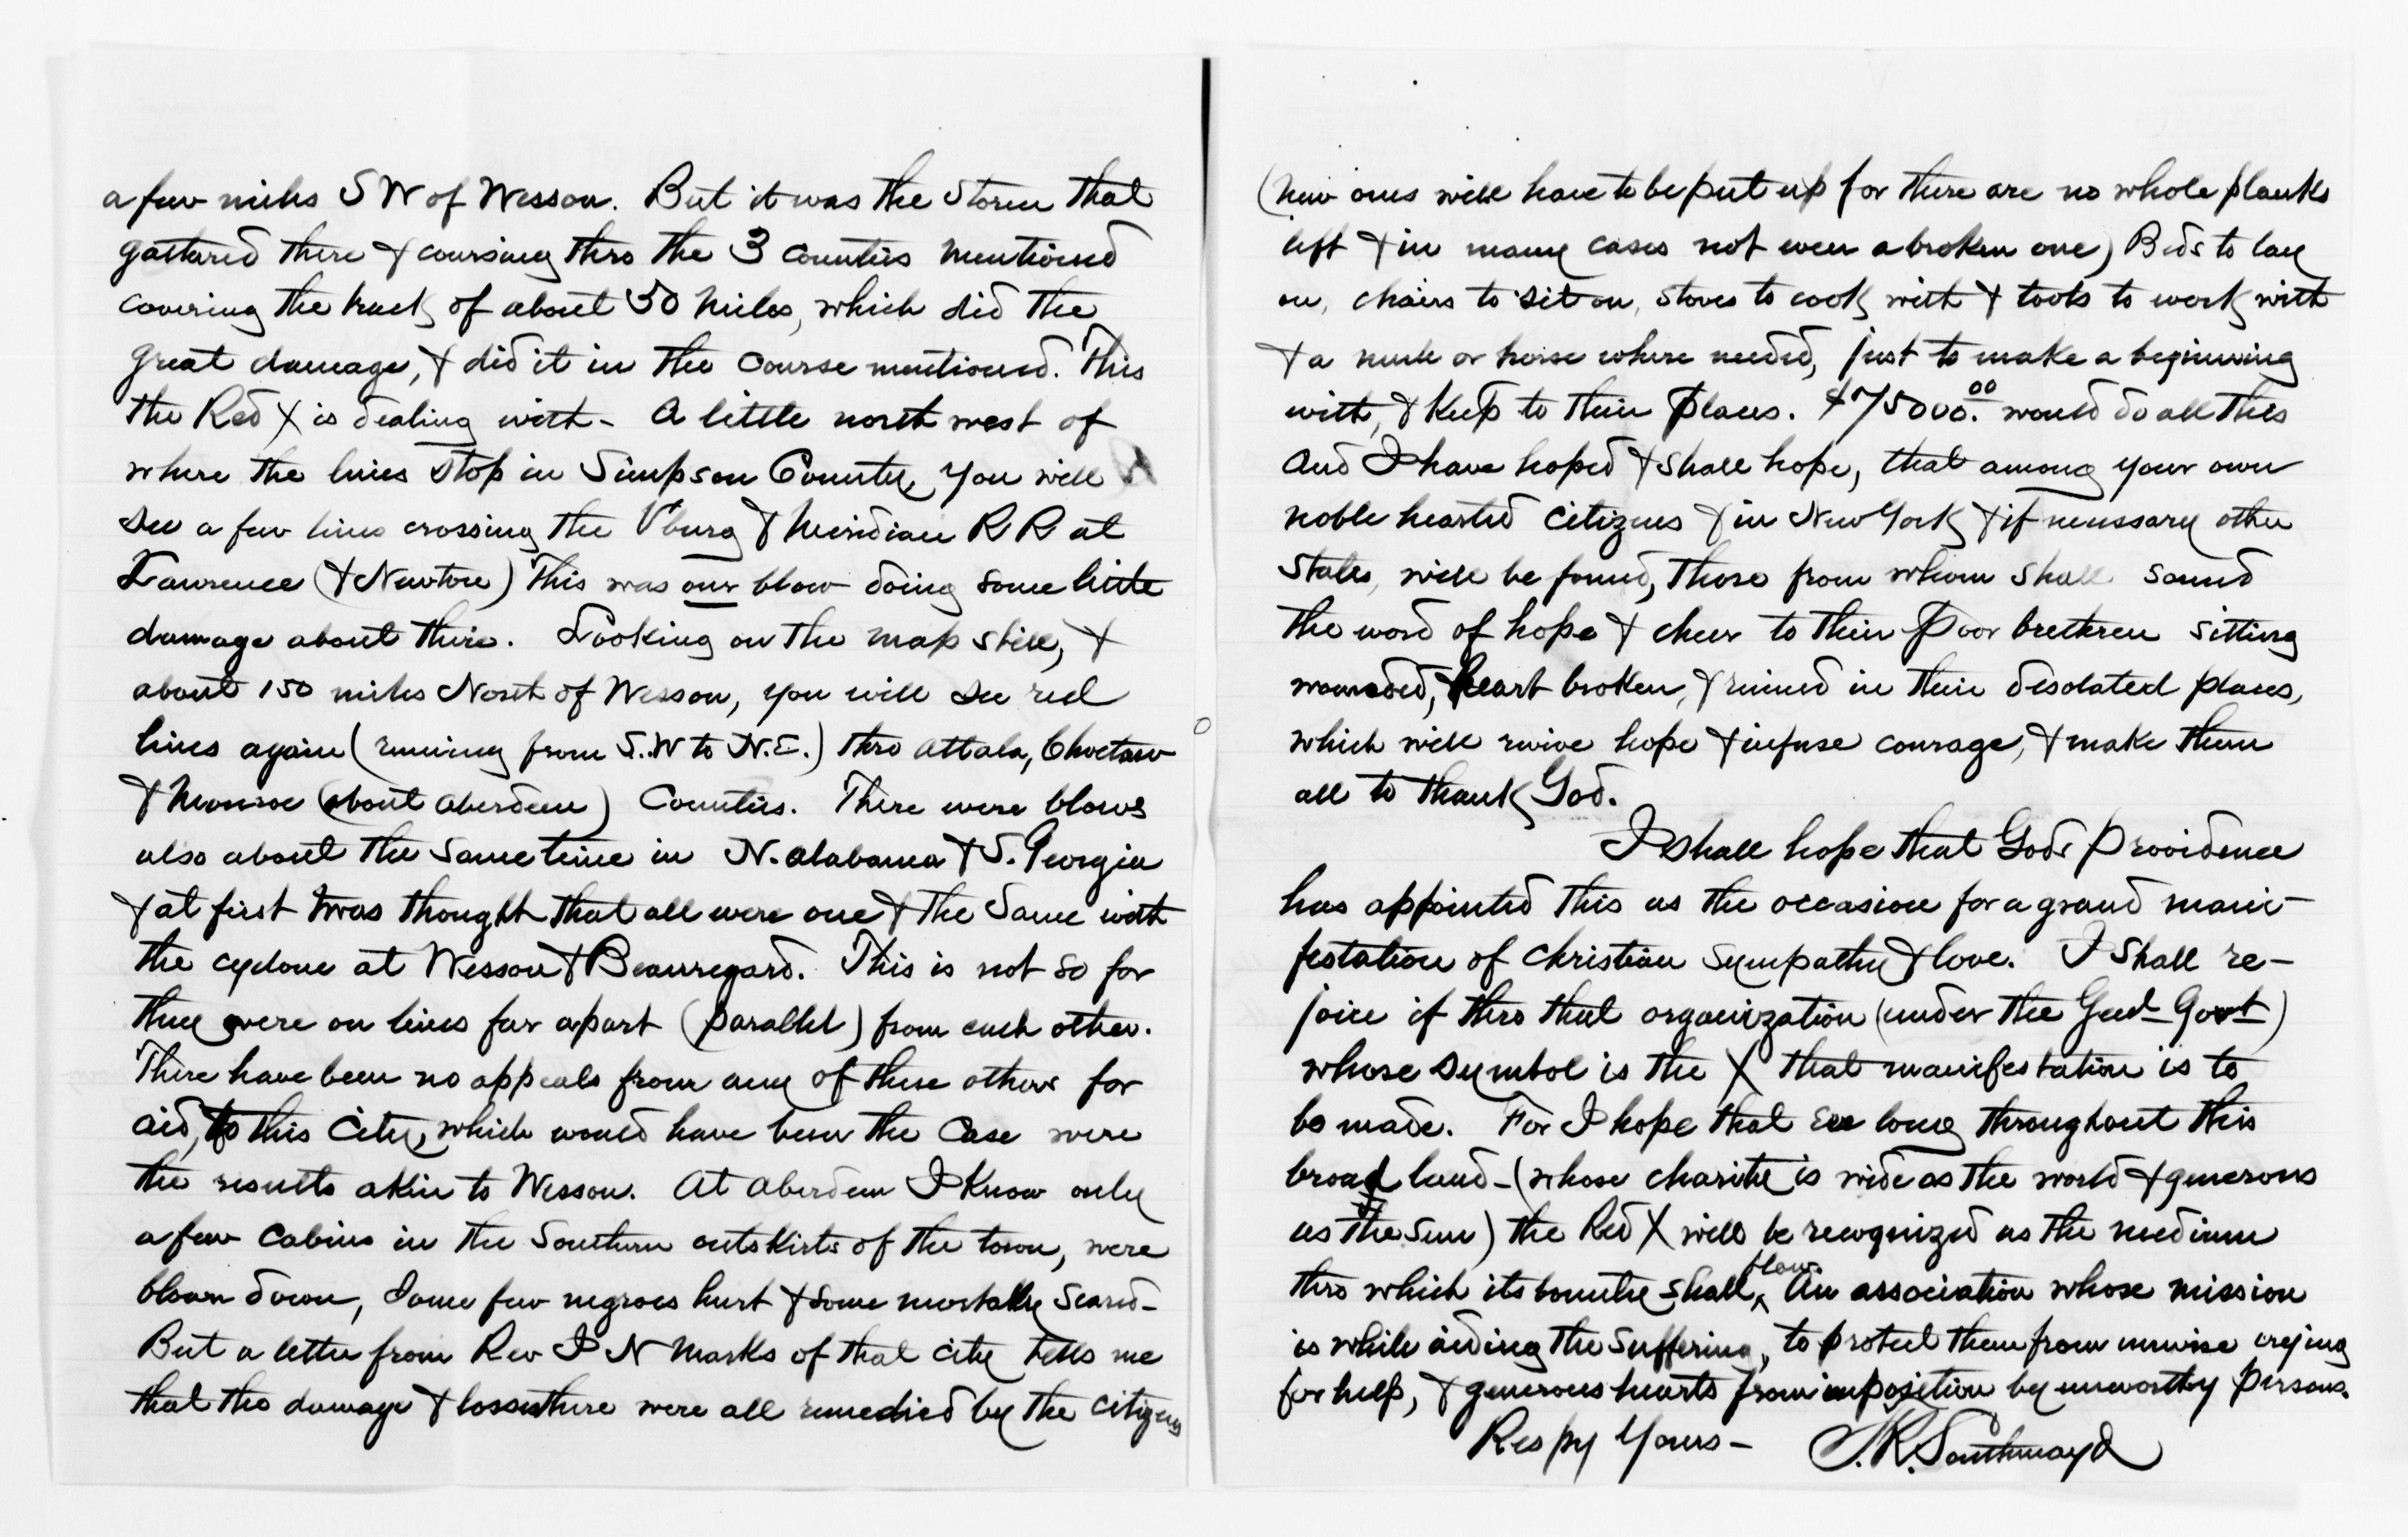 a few miles S W of Wesson. But it was the Storm that
gathered there & coursing thro the 3 counties mentioned
covering the track of about 50 miles, which did the
great damage, & did it in the course mentioned. This
the Red X is dealing with - A little north west of
where the lines stop in Simpson County, you will
see a few lines crossing the V'burg & Meridian R R at
Lawrence (& Newton) This was our blow doing some little
damage about there. Looking on the map still, &
about 150 miles North of Wesson, you will see red
lines again (running from S.W to N.E.) thro Attala, Choctaw
& Monroe (about Aberdeen) Counties. There were blows
also about the same time in N. Alabama & S. Georgia
& at first twas thought that all were one & the same with
the cyclone at Wesson & Beauregard. This is not so for
they were on lines far apart (parallel) from each other.
There have been no appeals from any of these others for
aid, to this City, which would have been the case were
the results akin to Wesson. At Aberdeen I know only
a few Cabins in the Southern outskirts of the town, were
blown down, some few negroes hurt & some mortally scared -
But a letter from Rev I N Marks of that city tells me
that the damage & losses there were all remedied by the citizens
(new ones will have to be put up for there are no whole planks
left & in many cases not even a broken one) Beds to lay
on, chairs to sit on, stoves to cook with & tools to work with
& a mule or horse where needed, just to make a beginning
with, & keep to their places. $75000.00 would do all this
and I have hoped & shall hope, that among your own
noble hearted citizens & in New York & if necessary other
States, will be found, those from whom shall sound
the word of hope & cheer to their poor brethren sitting
wounded, heart broken, & ruined in their desolated places,
which will revive hope & infuse courage, & make them
all to thank God.
I shall hope that Gods Providence
has appointed this as the occasion for a grand mani-
festation of christian sympathy & love. I shall re-
joice if thro that organization (under the Genl Govt)
whose symbol is the X that manifestation is to
be made. For I hope that ere long throughout this
broad land - (whose charity is wide as the world & generous
as the sun) the Red X will be recognized as the medium
thro which its bounty shall flow. An association whose mission
is while aiding the suffering, to protect them from unwise crying
for help, & generous hearts from imposition by unworthy persons.
Respy Yours - S.R. Southmayd